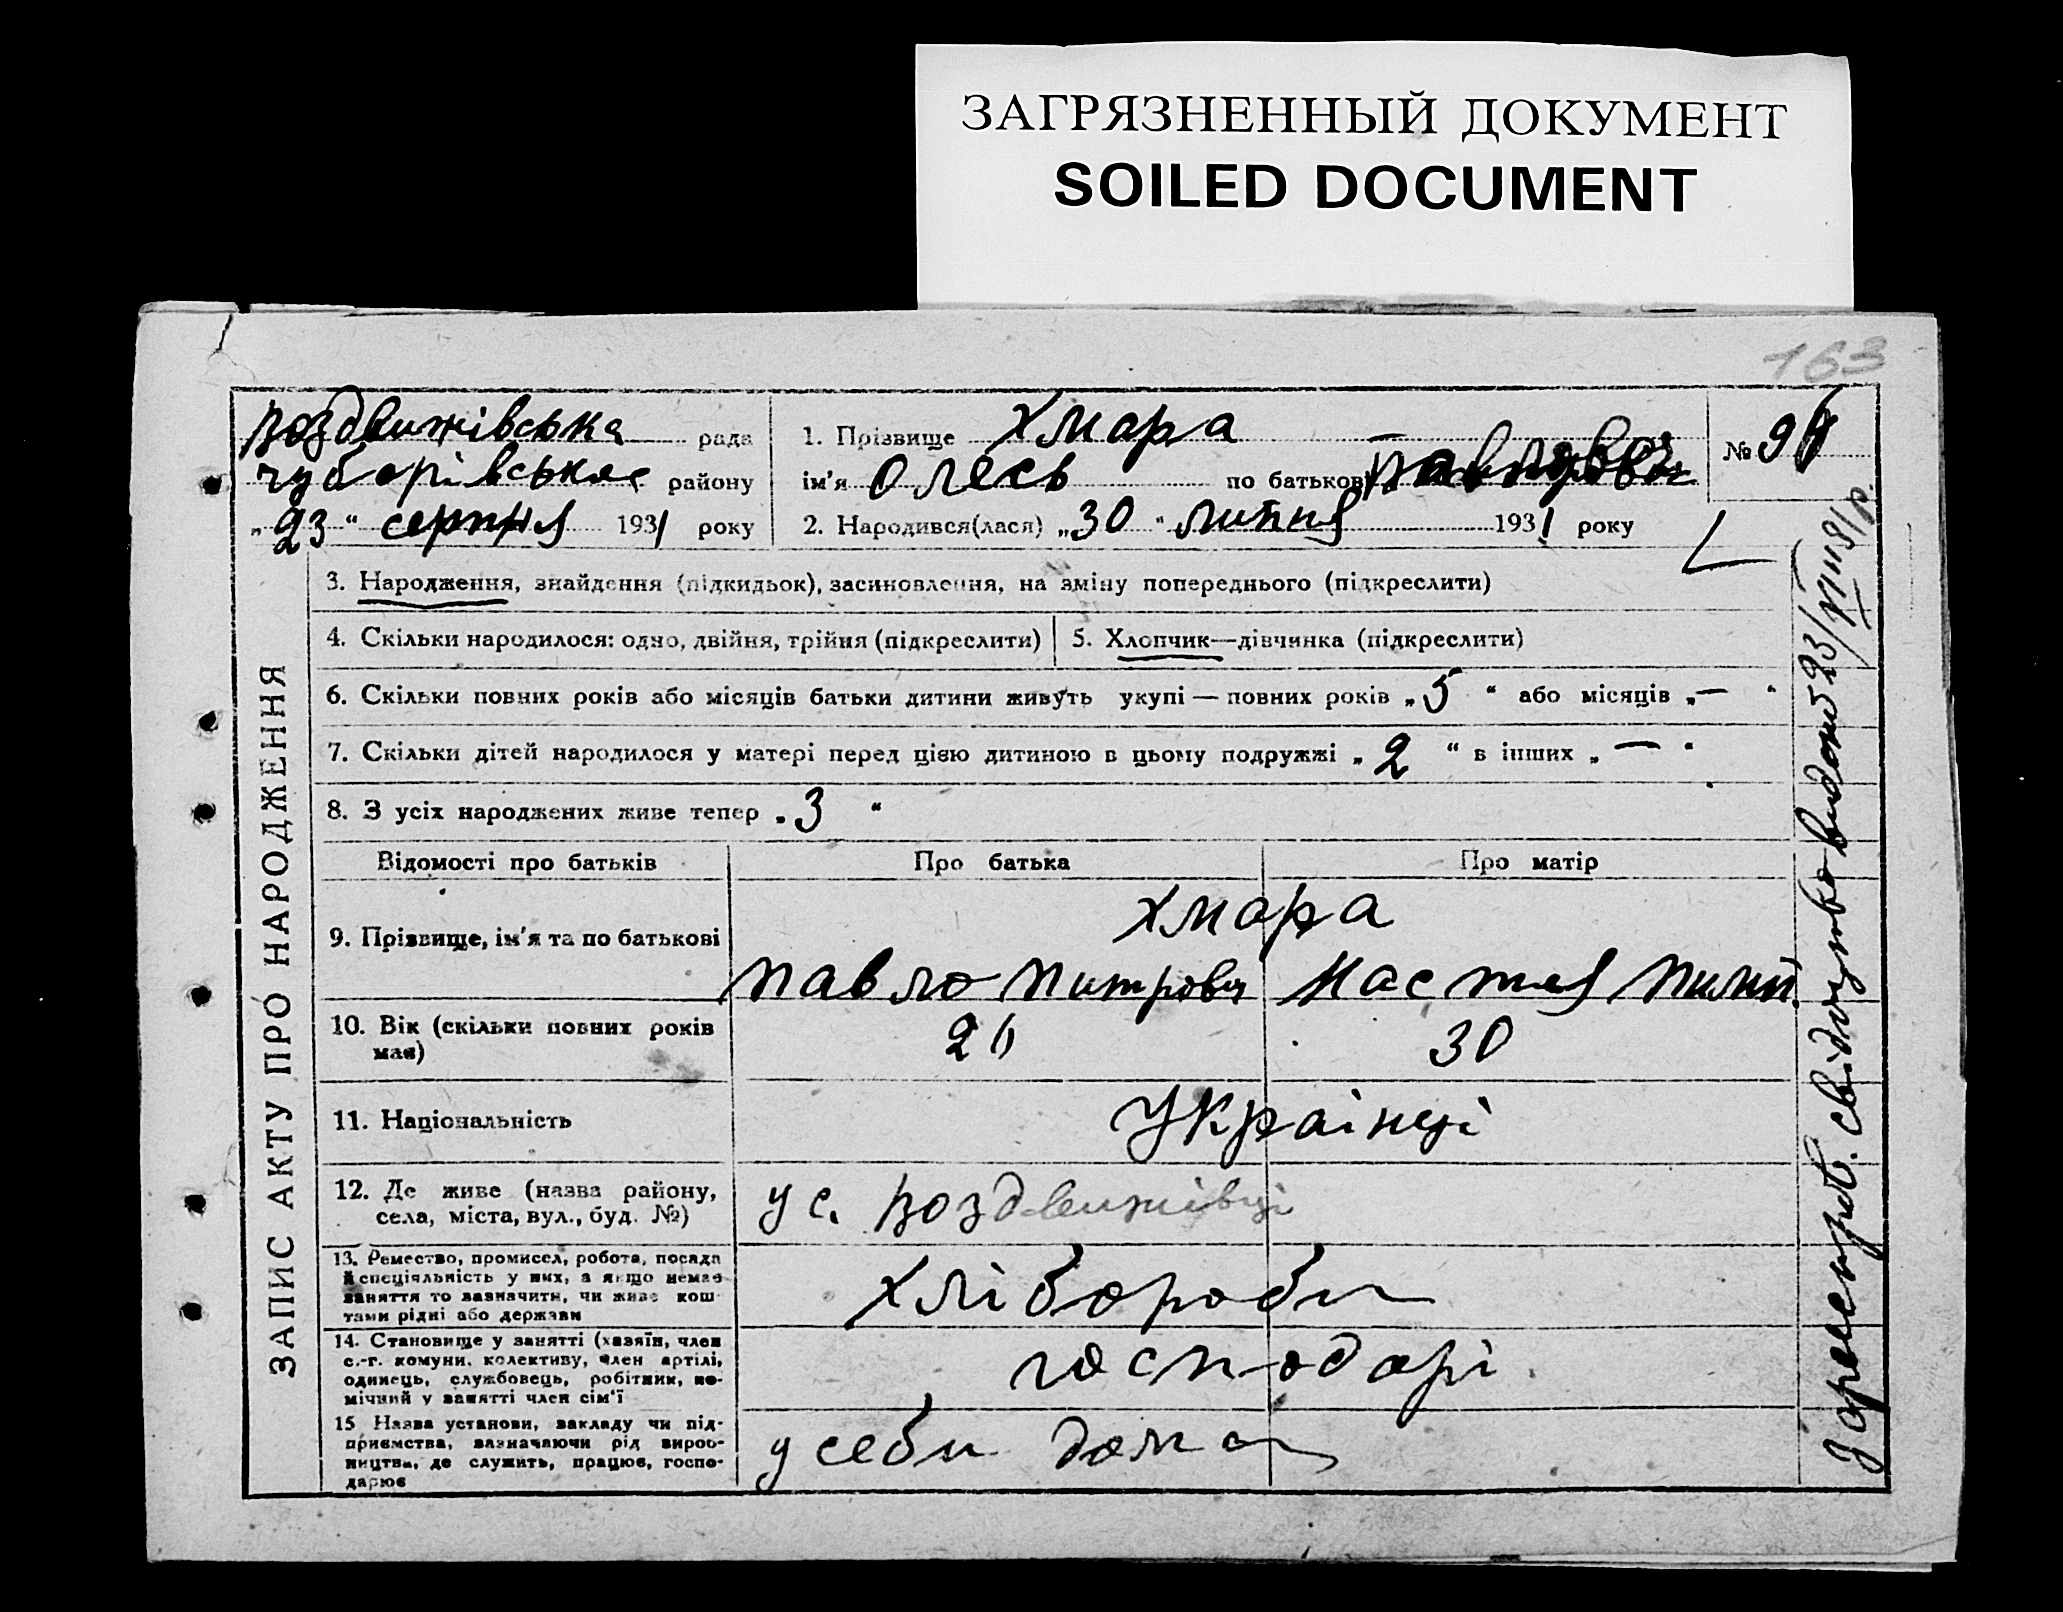 ЗАГРЯЗНЕННЫЙ ДОКУМЕНТ
SOILED DOCUMENT
163
Роздвижівська рада
району
„23“ серпня 1931 року
1. Прізвище Хмара
ім'я Олесь по батькові Павлович
2. Народився(лася) „30“ липня 1931 року
№ 9
3. Народження, знайдення (підкидьок), засиновлення, на зміну попереднього (підкреслити)
4. Скільки народилося: одно, двійня, трійня (підкреслити)
5. Хлопчик—дівчинка (підкреслити)
6. Скільки повних років або місяців батьки дитини живуть укупі — повних років „5“ або місяців „—“
7. Скільки дітей народилося у матері перед цією дитиною в цьому подружжі „2“ в інших „—“
8. З усіх народжених живе тепер „3“
Відомості про батьків
Про батька
Про матір
9. Прізвище, ім'я та по батькові
Хмара
Павло
Настя
10. Вік (скільки повних років
має)
30
11. Національність
Українці
12. Де живе (назва району,
села, міста, вул., буд. №)
у с. Роздвижівці
13. Ремество, промисел, робота, посада
й спеціяльність у них, а якщо немає
заняття то зазначити, чи живе кош-
тами рідні або держави
Хлібороби
14. Становище у занятті (хазяїн, член
с.-г. комуни, колективу, член артілі,
одинець, службовець, робітник, по-
мічний у занятті член сім'ї
господарі
15 Назва установи, закладу чи під-
приємства, зазначаючи рід вироб-
ництва, де служить, працює, госпо-
дарює
у себи дома
ЗАПИС АКТУ ПРО НАРОДЖЕННЯ
свідоцтво видано 23/VIII 31 р.